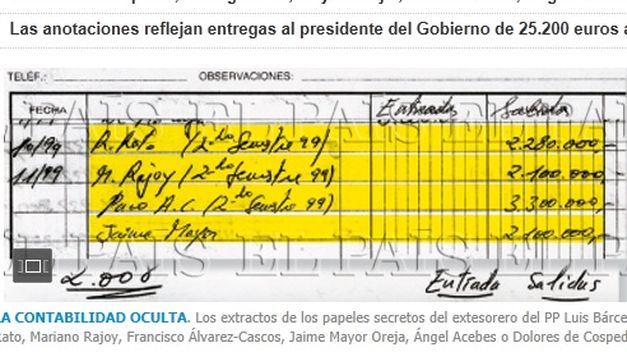 Las anotaciones reflejan entregas al presidente del Gobierno de 25.200 euros a
TELÉF.: OBSERVACIONES:
FECHA Entrada Salida
EL PAIS EL PAIS
10/99 R. Rato (2º Semestre 99) 2.280.000,-
11/99 M. Rajoy (2º Semestre 99) 2.100.000,-
Paco A.C. (2º Semestre 99) 3.300.000,-
Jaime Mayor 2.100.000,-
EL PAIS
2.000 Entrada Salidas
LA CONTABILIDAD OCULTA. Los extractos de los papeles secretos del extesorero del PP Luis Bárce
Rato, Mariano Rajoy, Francisco Álvarez-Cascos, Jaime Mayor Oreja, Ángel Acebes o Dolores de Cosped